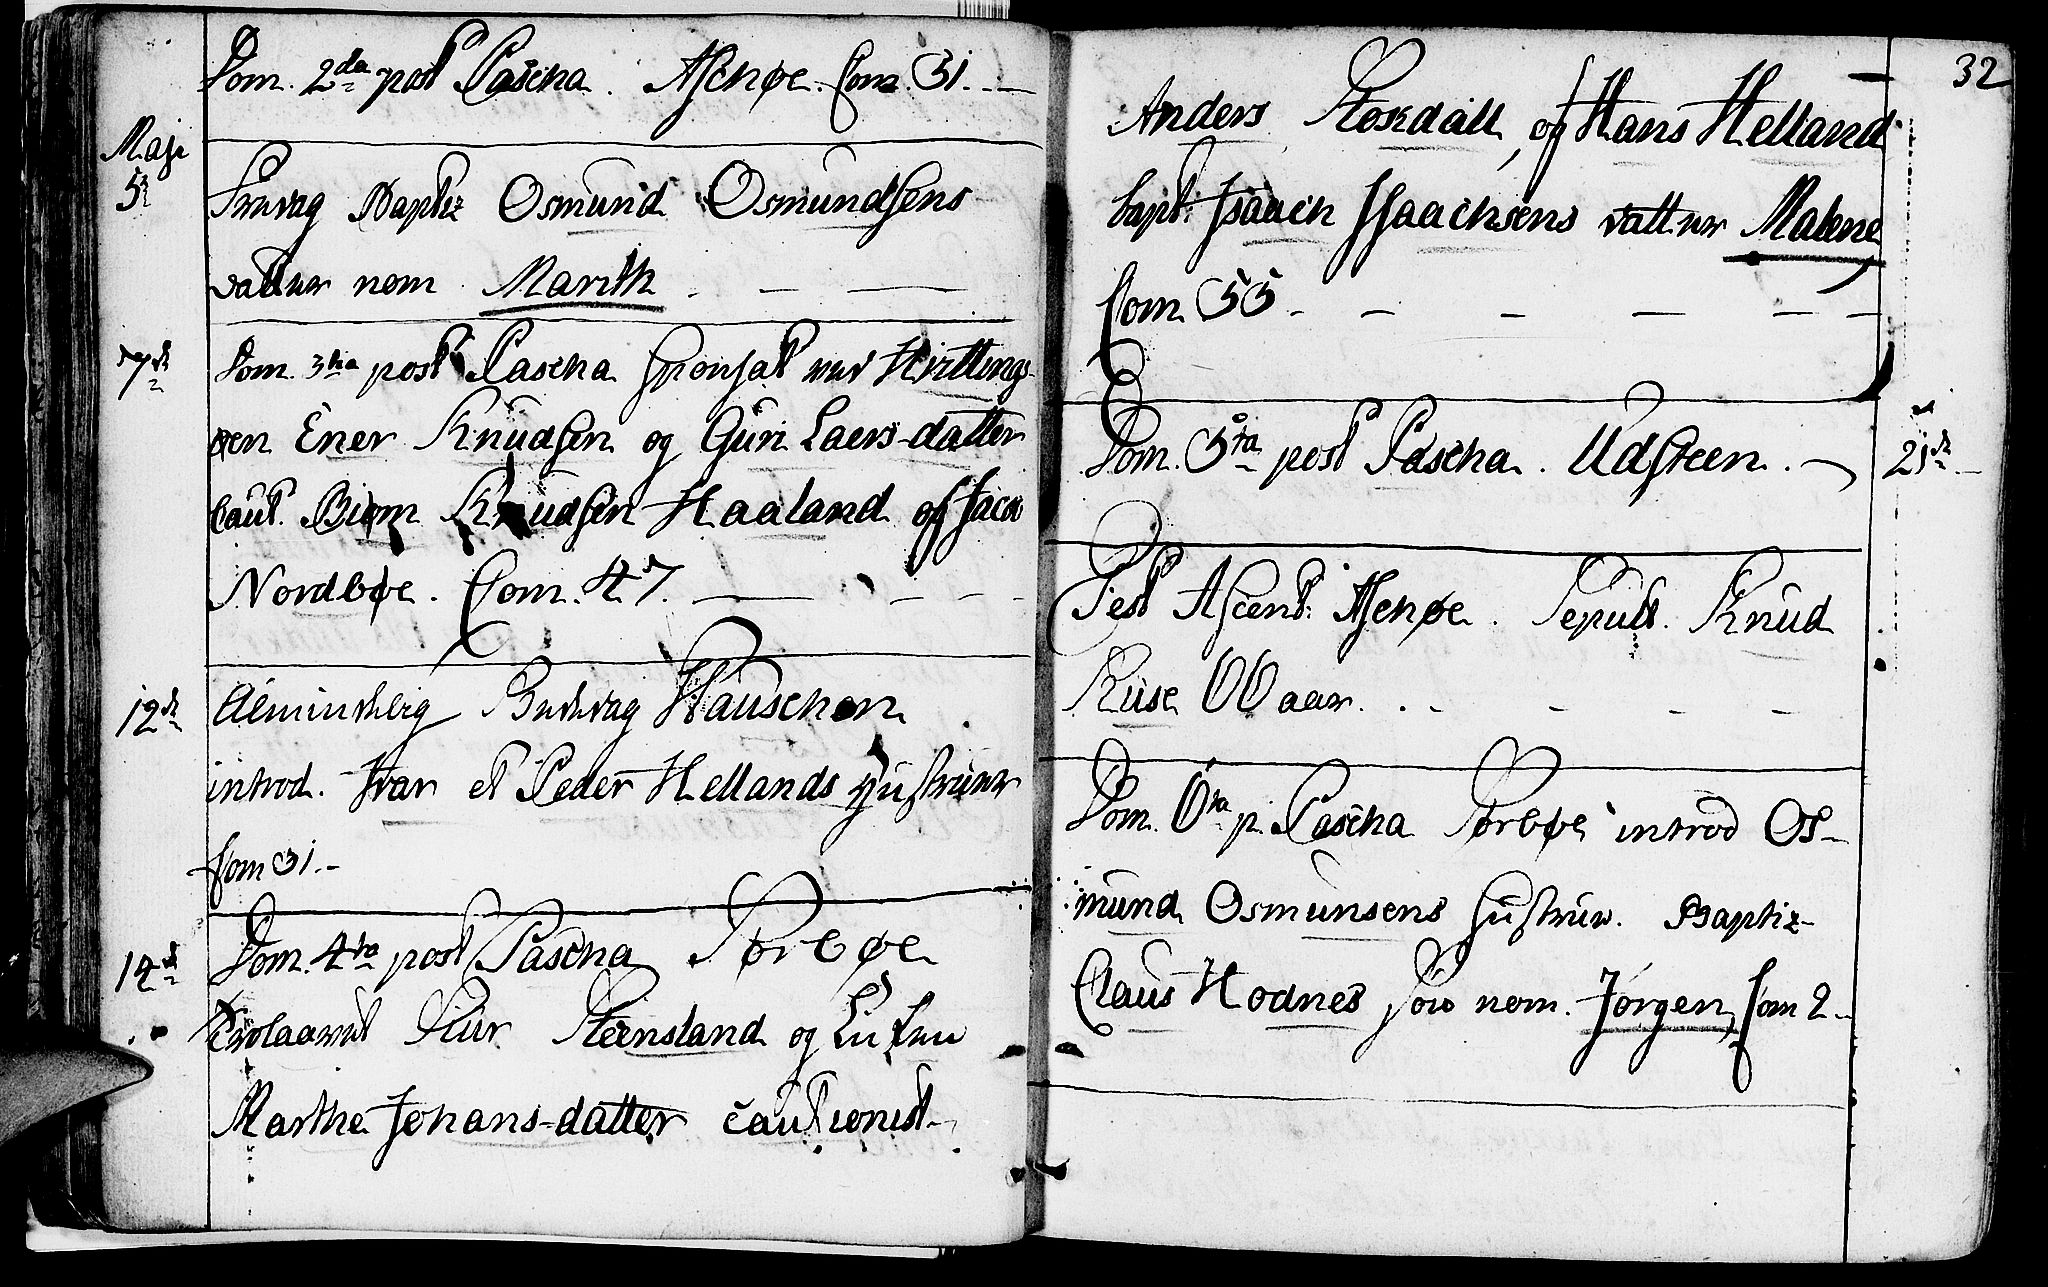 Dom. 2da post Pascha. Aschøe. Com. 31.
Maji
5
Fredag Baptiz Osmund Osmundsens
datter nom Marith
7de Dom. 3tia post Pascha sponsat ved Hvittings-
øen Ener Knudsen og Guri Laers-datter
Caut. Biørn Knudsen Haaland og Jacob
Nordbøe. Com. 47.
12de Almindelig Bededag Hauschen
introd. Ivar et Peder Hellands Hustruer
Com 31.
14de Dom. 4ta post Pascha Sørbøe
Trolaavet Siur Steensland og
Marthe Johans-datter cautionist
32
Anders Rosdall og Hans Helland
bapt. Isaach Isaachsens datter Malene
Com 55
Dom. 5ta post Pascha. Udsteen. 21de
Fest Ascent: Aschøe. Sepult. Knud
Kuse 66 aar.
Dom. 6ta p. Pascha Sørbøe introd Os-
mund Osmunsens Hustrue. Baptiz-
Claus Hodnes søn nom. Jørgen, Com 2